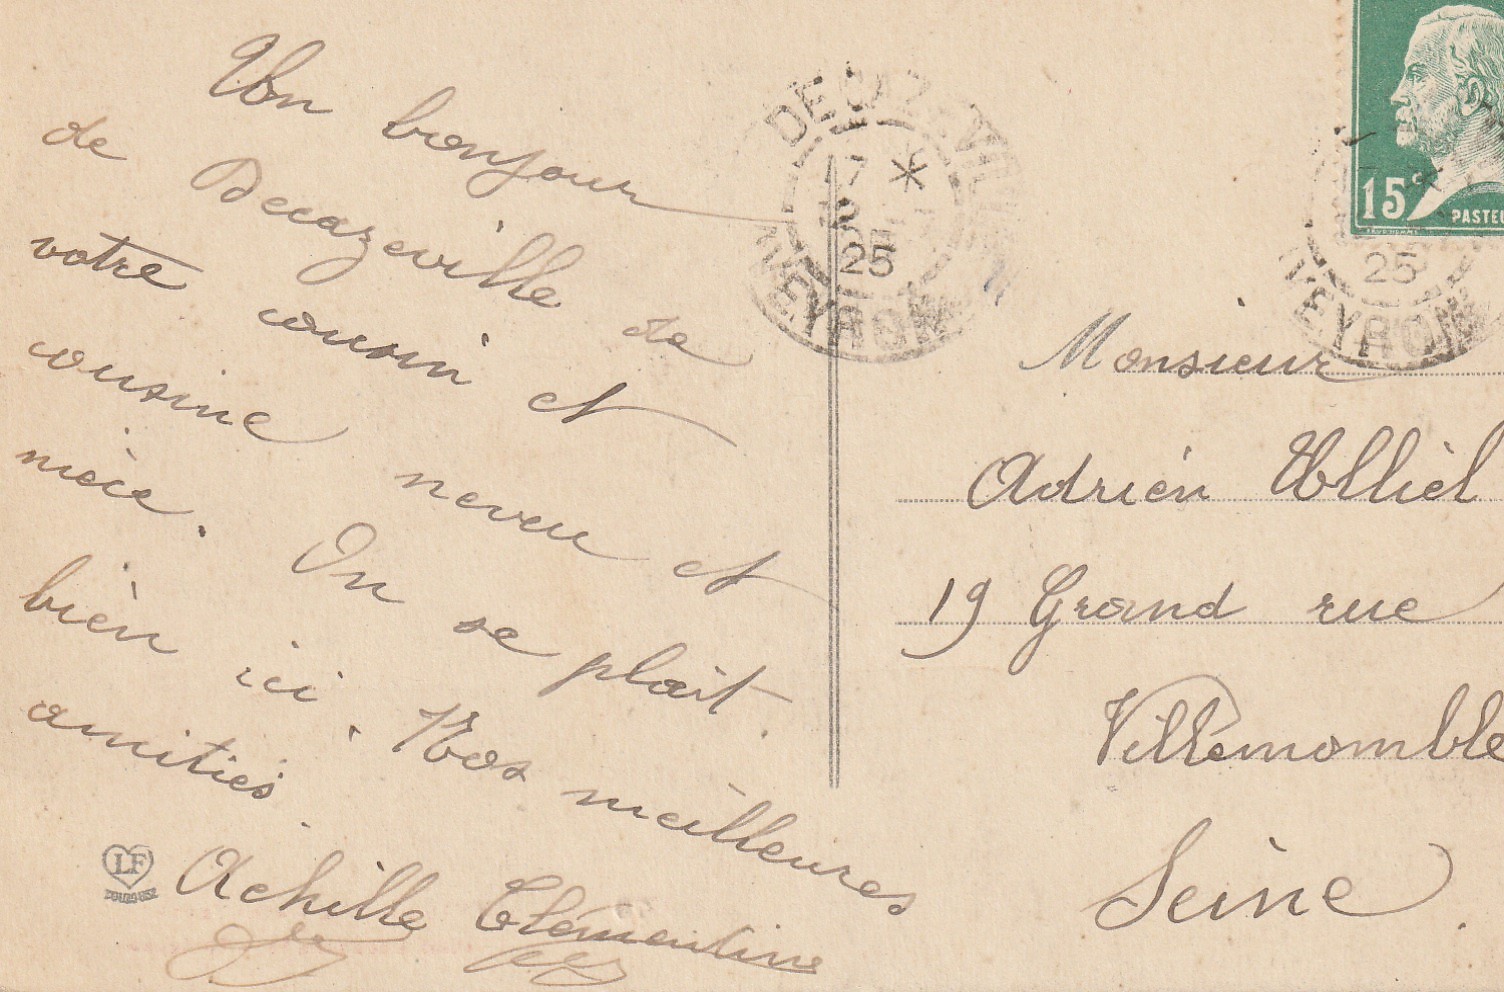 Un bonjour
de Decazeville de
votre cousin et
cousine neveu et
nièce. On se plait
bien ici. Nos meilleures
amitiés.
Achille Clémentine
LF
DECAZEVILLE
17 *
25
AVEYRON
15c
PASTEU
25
AVEYRON
Monsieur
Adrien
19 Grand rue
Villemomble
Seine.